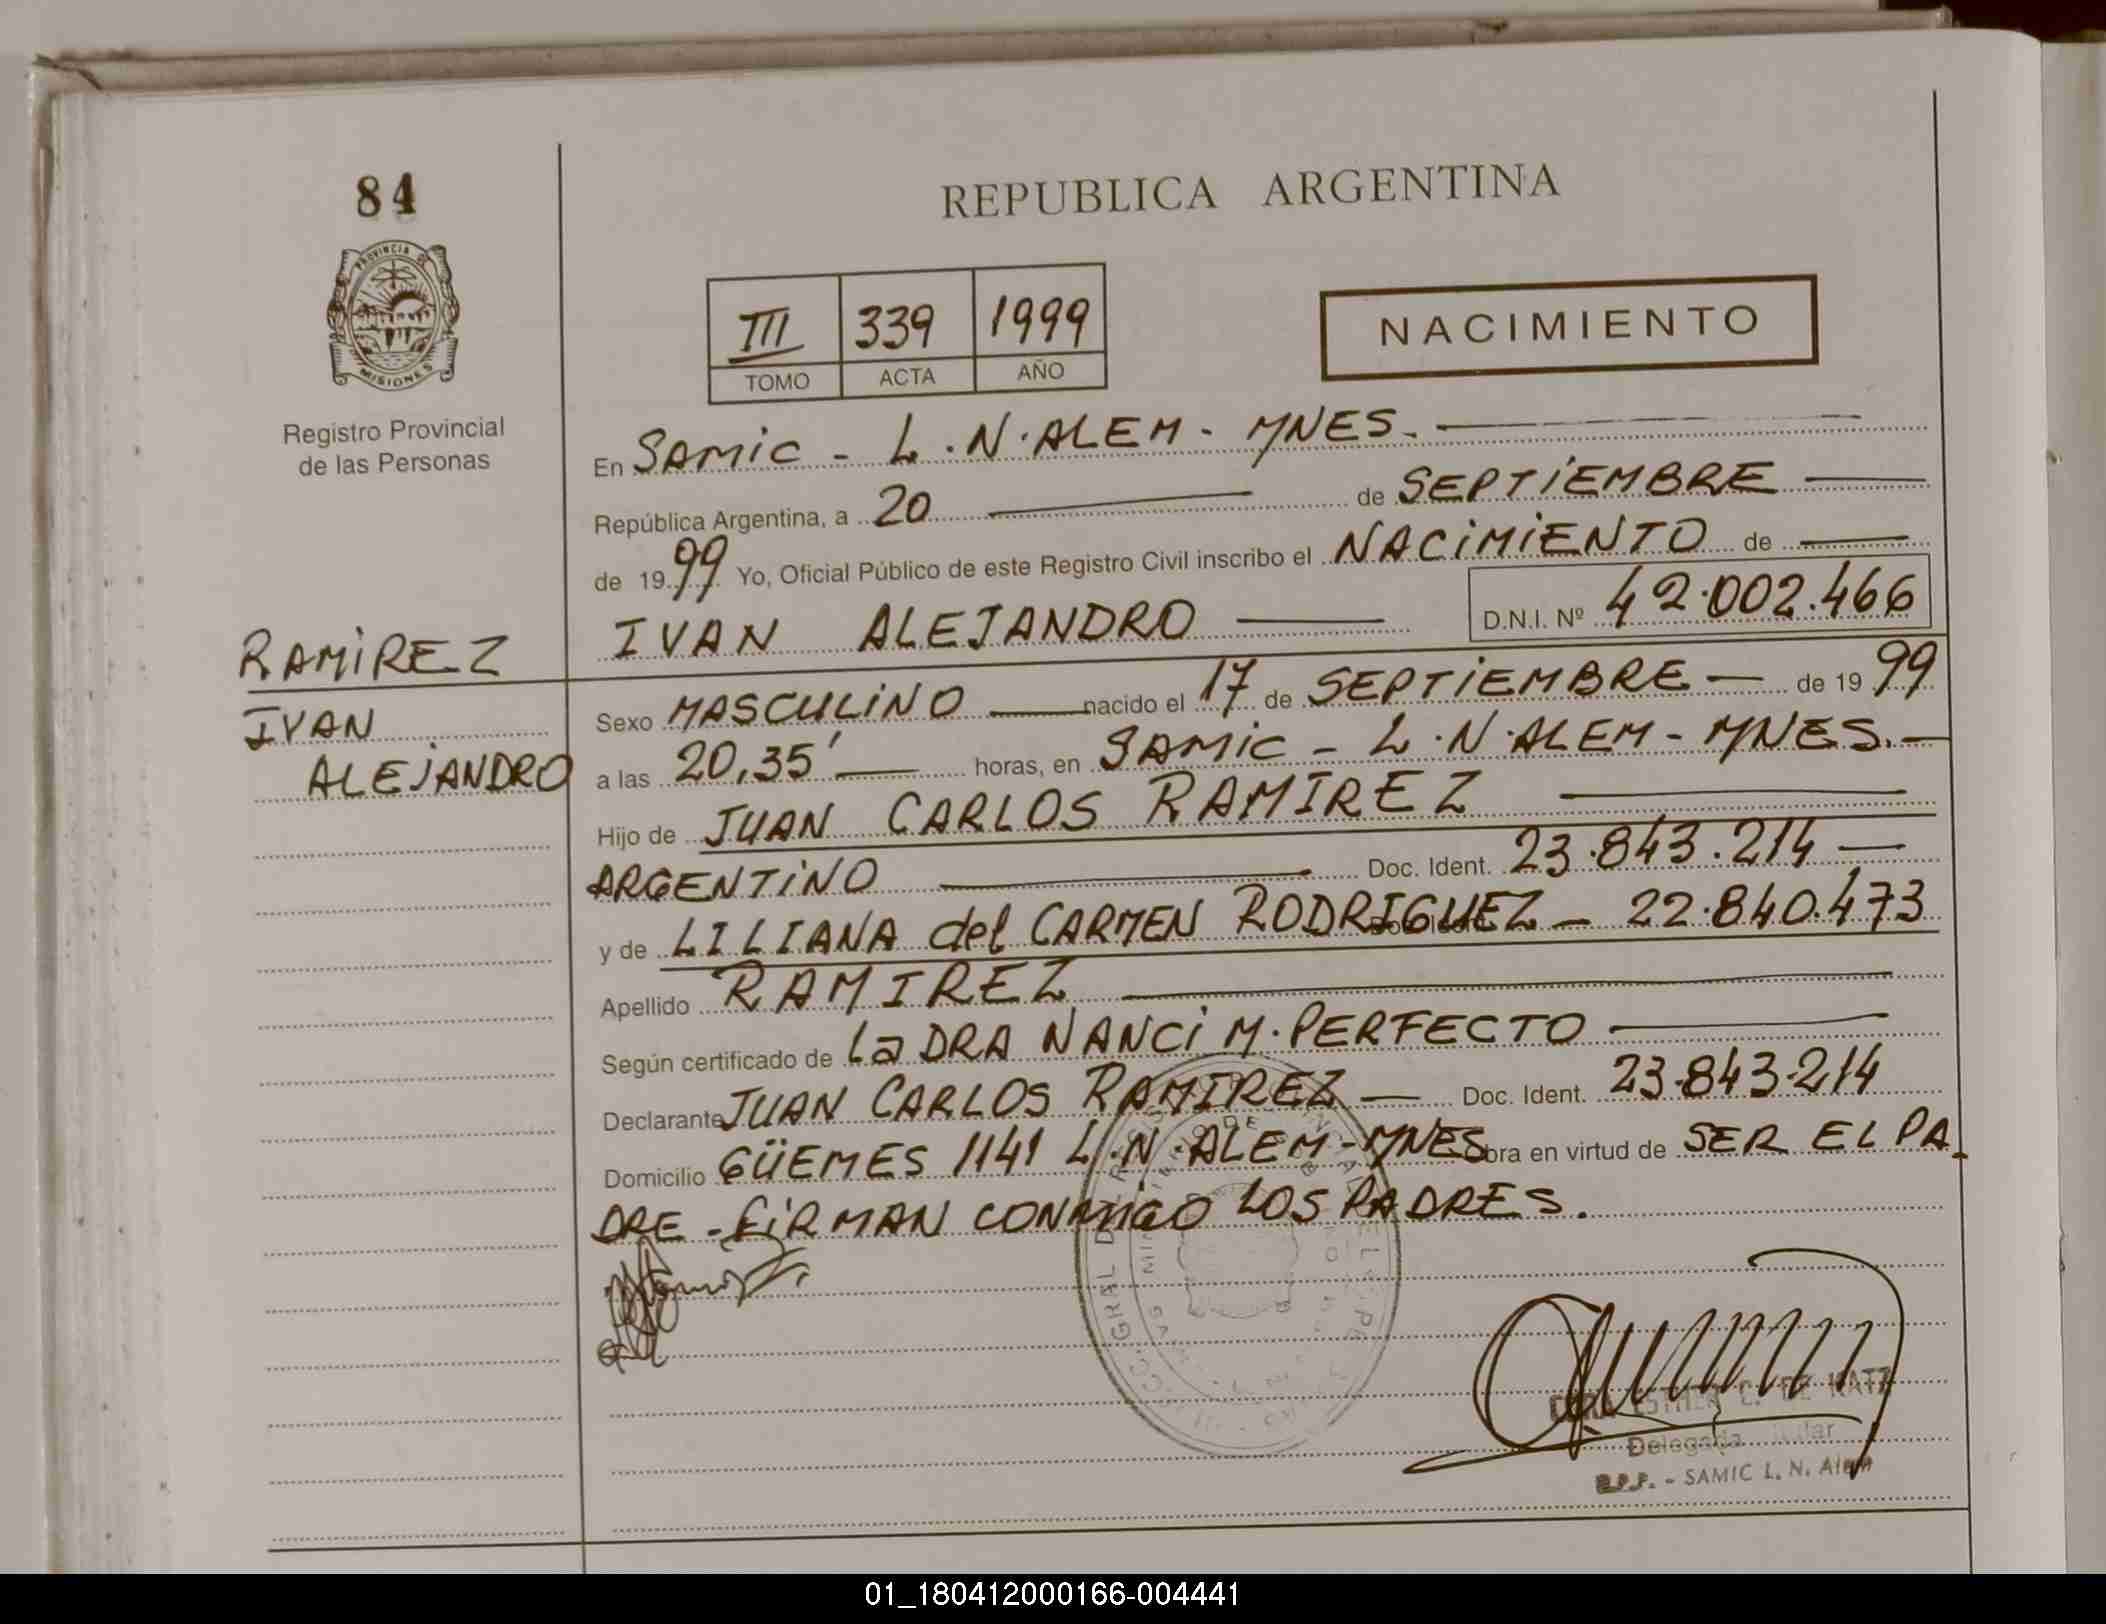 84
PROVINCIA DE
MISIONES
Registro Provincial
de las Personas
REPUBLICA ARGENTINA
III 339 1999
TOMO ACTA AÑO
NACIMIENTO
En SAMIC - L.N.ALEM - MNES.
República Argentina, a 20 de SEPTIEMBRE
de 1999 Yo, Oficial Público de este Registro Civil inscribo el NACIMIENTO de
IVAN ALEJANDRO D.N.I. Nº 42.002.466
RAMIREZ
IVAN
ALEJANDRO
Sexo MASCULINO nacido el 17 de SEPTIEMBRE de 1999
a las 20,35' horas, en SAMIC - L.N.ALEM - MNES.
Hijo de JUAN CARLOS RAMIREZ
ARGENTINO Doc. Ident. 23.843.214
y de LILIANA del CARMEN RODRIGUEZ - 22.840.473
Apellido RAMIREZ
Según certificado de La DRA NANCI M. PERFECTO
Declarante JUAN CARLOS RAMIREZ Doc. Ident. 23.843.214
Domicilio GÜEMES 1141 L.N.ALEM-MNES obra en virtud de SER EL PA
DRE - FIRMAN CONMIGO LOS PADRES.
ESTHER C. DE KATZ
Delegada Titular
- SAMIC L. N. Alem
01_180412000166-004441